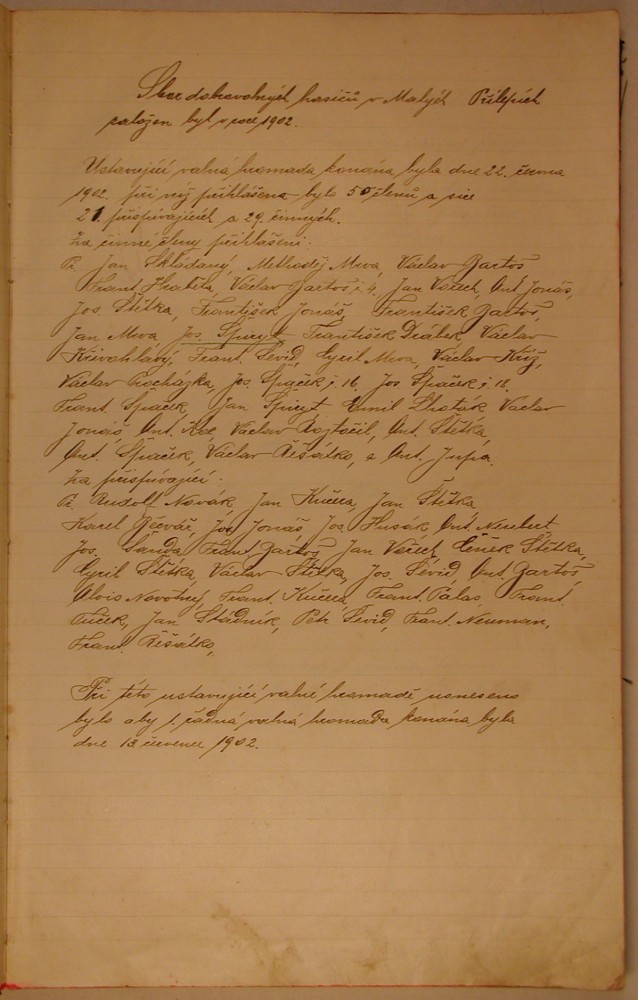 Sbor dobrovolných hasičů v Malých Přílepích
založen byl v roce 1902.
Ustavující valná hromada konána byla dne 22. června
1902. při níž přihlášeno bylo 50 členů a sice
21 přispívajících a 29. činných.
Za činné členy přihlášeni:
P. Jan Skládaný, Methoděj Mrva, Václav Bartoš
Frant. Václav Bartoš č 4, Jan Ant. Jonáš,
Jos. Štětka, František Jonáš, František Bartoš,
Jan Mrva, Jos. Špiryt František Drábek Václav
Křivohlavý, Frant. Sevid, Cyril Mrva, Václav Kříž,
Václav Procházka, Jos. Špaček č 16, Jos Špaček č 18.
Frant. Špaček, Jan Špiryt Emil Lhoták Václav
Jonáš, Ant. Václav Ant. Štětka,
Ant. Špaček, Václav Řišátko, a Ant. Jupa.
Za přispívající:
P. Rudolf Novák, Jan Kučera, Jan Štětka
Karel Jos Jonáš, Jos. Husák, Ant. Neubert,
Jos. Šanda, Frant. Bartoš, Jan Čeněk Štětka,
Cyril Štětka, Václav Štětka, Jos. Sevid, Ant. Bartoš,
Alois Novotný, Frant. Kučera, Frant. Palas, Frant.
Tuček, Jan Stádník, Petr Sevid, Frant. Neuman,
Frant. Řišátko,
Při této ustavující valné hromadě usneseno
bylo aby 1. řádná valná hromada konána byla
dne 13 července 1902.